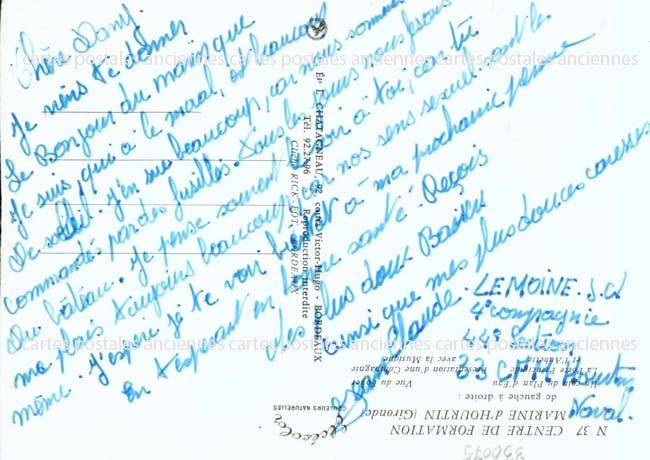 Chère Dany.
Je viens te donner
Le Bonjour du marin que
Je suis, qui a le moral, et beaucoup
De soleil. J'en sue beaucoup, car nous sommes
commandés par des fusilles. Tous les jours nous faisons
Du bâteau. Je pense souvent à toi, car tu
me plais toujours beaucoup car nos sens sexuel sont les
même. J'espère te voir bientôt à ma prochaine perme
en t'espérant en bonne santé. Reçois
Mes plus doux Baisers
ainsi que mes plus douces caresses
Jean Claude.
LEMOINE. J. CL
4e compagnie
33 CFM Hourtin
Naval.
Et L. CHATAGNEAU, 92, cours Victor-Hugo - BORDEAUX
Tél. 92.27-96 - Reproduction interdite
Cliché RICK-EDT, BORDEAUX
N 37 CENTRE DE FORMATION
MARINE d'HOURTIN (Gironde)
de gauche à droite :
Un coin du Plan d'Eau
Vue du Foyer
La Porte Principale
Présentation d'une Compagnie
avec la Musique
COULEURS NATURELLES
330075
cartes postales anciennes cartes postales anciennes cartes postales anciennes
cartes postales anciennes cartes postales anciennes cartes postales anciennes